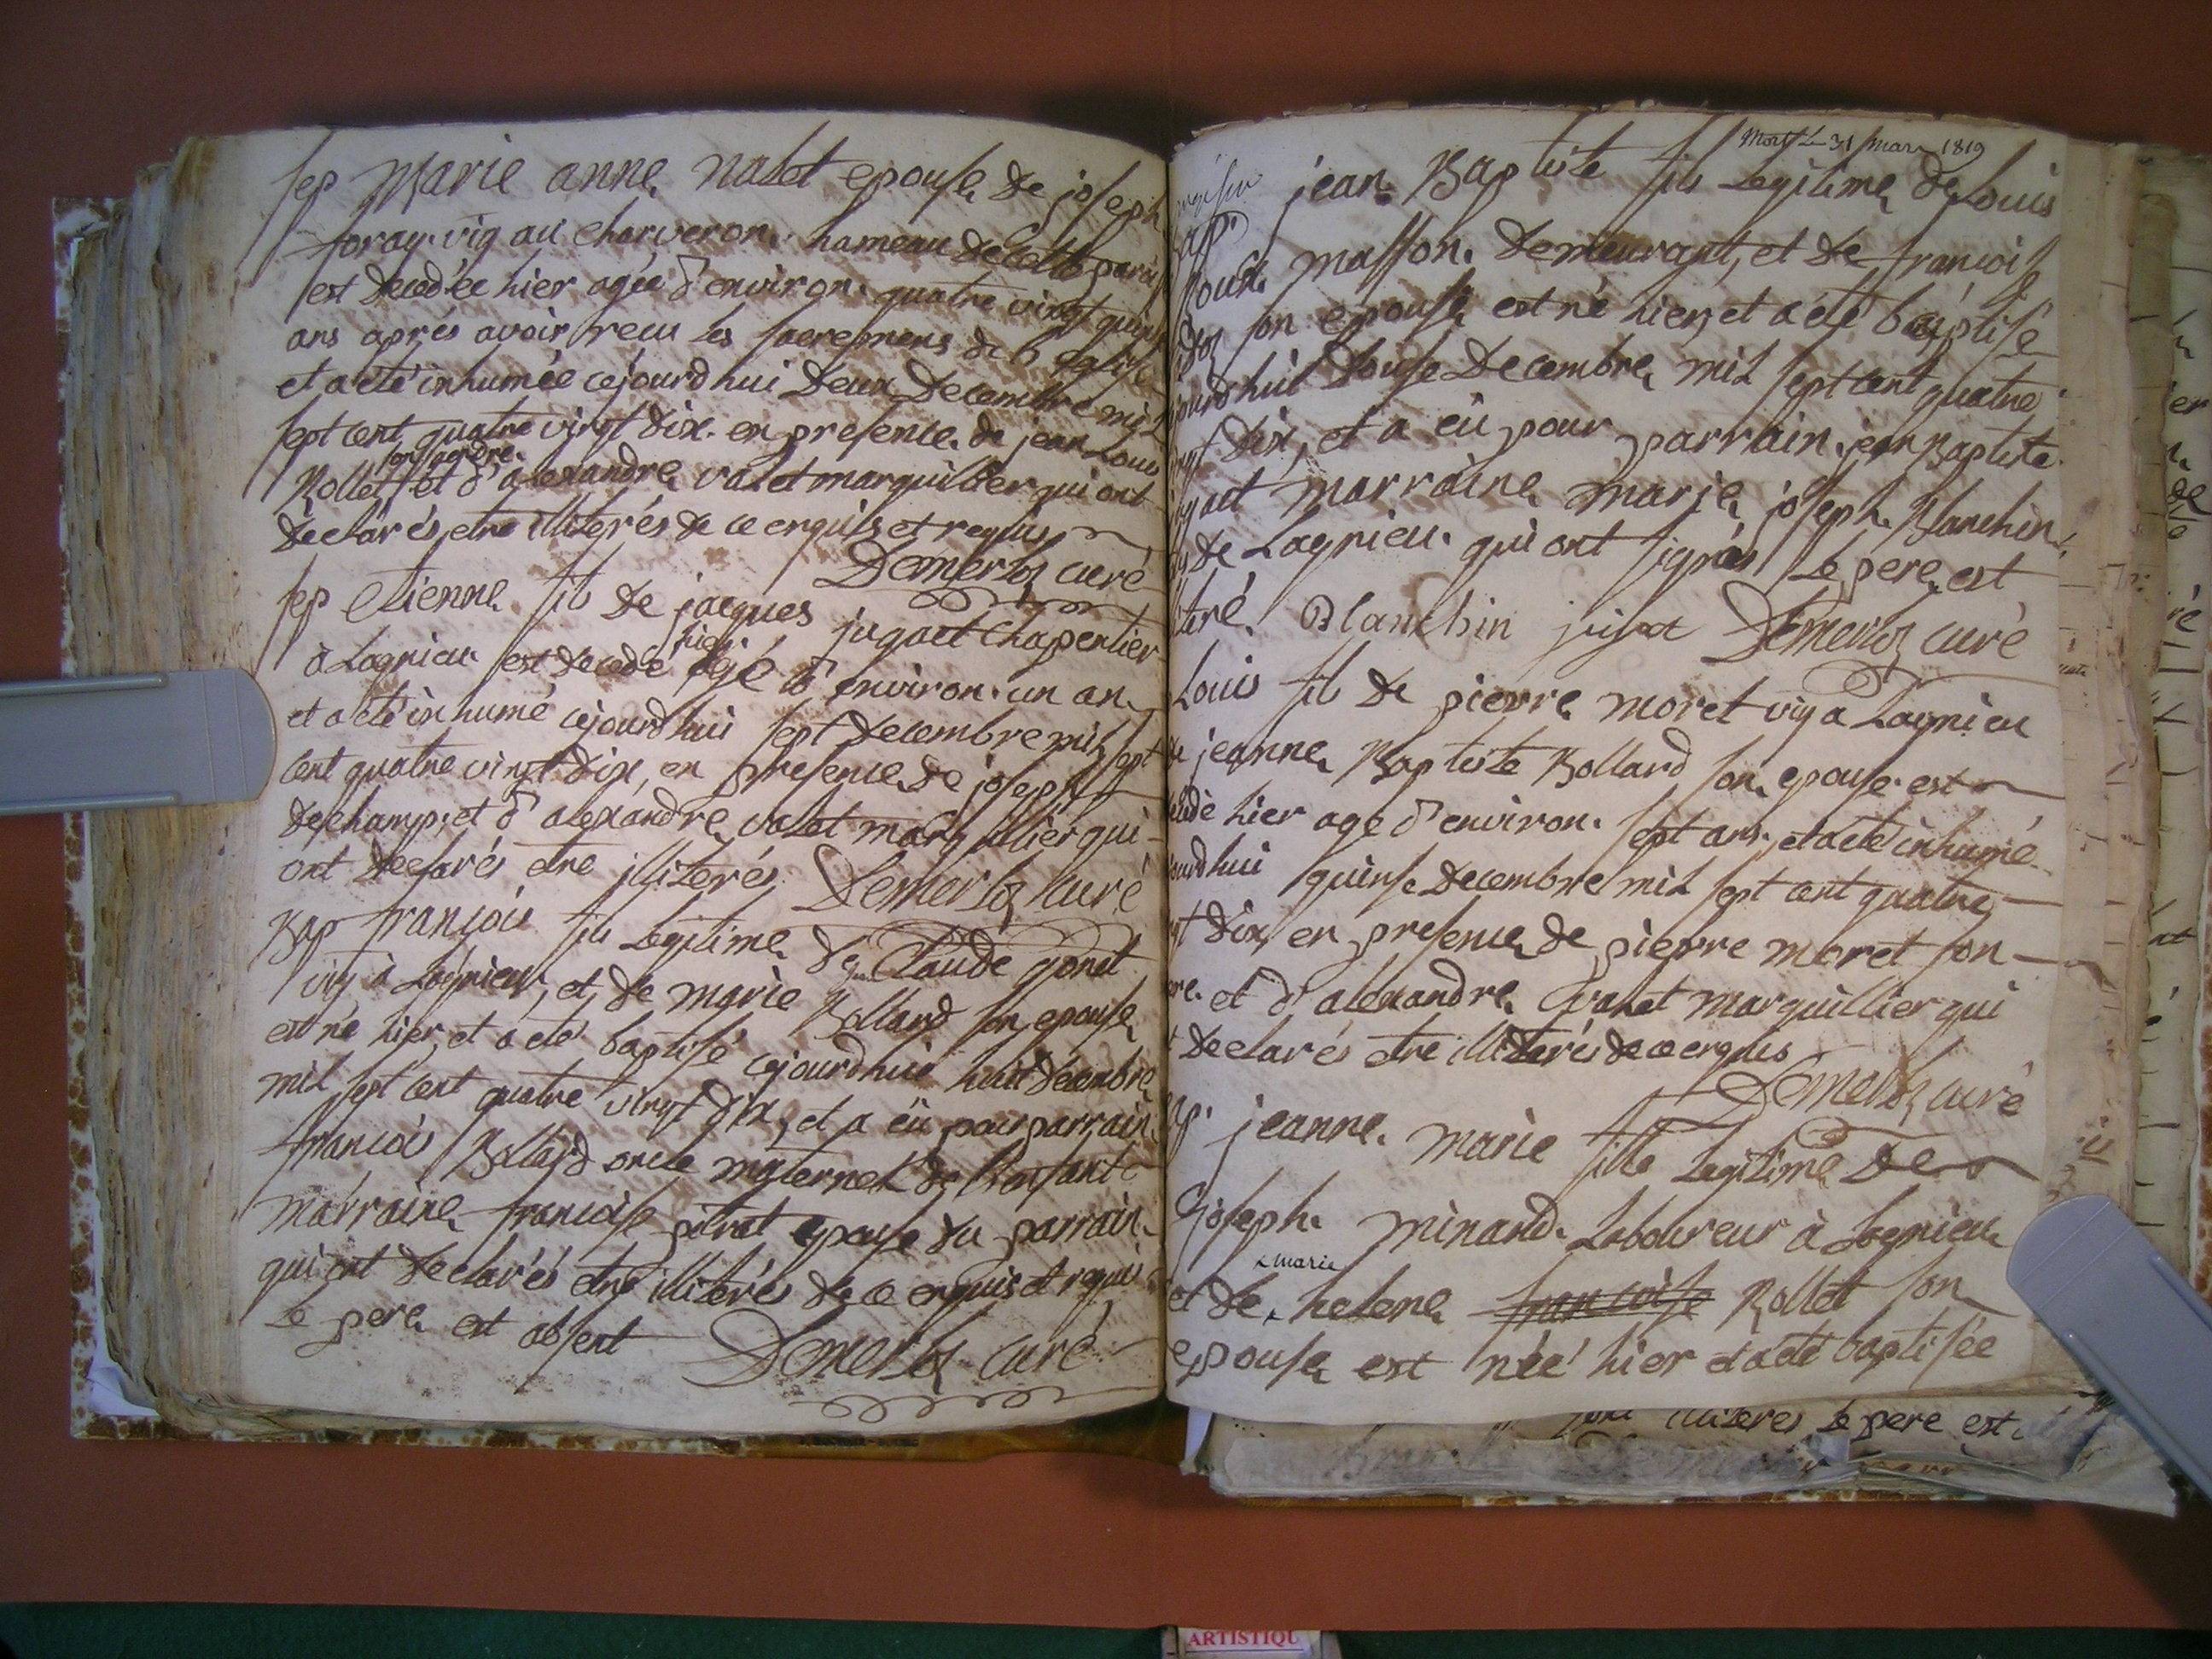 sep Marie anne Nalet epouse de joseph
foray vig au Charveron hameau de cette
est decedée hier agée d'environ quatre vingt
ans aprés avoir recu les sacremens de
et a été inhumée cejourdhui deux Decembre mil
sept cent quatre vingt dix en presence de jean Louis
son gendre
Rollet et d'alexandre valet marguillier qui ont
déclarés etre illiterés de ce enquis et requis
Demerloz curé
sep etienne fils de jacques juganet Chapentier
hier
à Lagnieu est decedé agé d'environ un an
et a été inhumé cejourdhui sept decembre mil sept
cent quatre vingt dix, en presence de joseph
deschamp, et d'alexandre valet marguillier qui
ont declarés etre illiterés Demerloz curé
Bap françois fils Legitime de Claude gonet
vig à Lagnieu, et de marie Rollard son epouse
est né hier, et a été baptisé cejourdhui huit decembre
mil sept cent quatre vingt dix, et a eü pour parrain
francois Rollard oncle maternel de l'enfant
marraine francoise epouse du parrain
qui ont declarés etre illiterés de ce enquis et requis
Le pere est absent Demerloz curé
Mort Le 31 mars 1819
jean Baptiste fils Legitime de Louis
masson. demeurant, et de francoise
son epouse est né hier, et a été baptisé
douse Decembre mil sept cent quatre
dix, et a eü pour parrain jean Baptiste
marraine marie joseph Blanchin
de Lagnieu qui ont signés Le pere est
Blanchin Demerloz curé
Louis fils de pierre moret vig a Lagnieu
jeanne Baptiste Rollard son epouse est
hier agé d'environ sept ans, et a été inhumé
quinse Decembre mil sept cent quatre
dix, en presence de pierre moret son
et d'alexandre valet marguillier qui
declarés etre illiterés de ce enquis
Demerloz curé
jeanne marie fille Legitime de
joseph minand Laboureur à Lagnieu
marie
et de helene francoise Rollet son
epouse est née hier et a été baptisée
illiteres Le pere est
ARTISTIQU